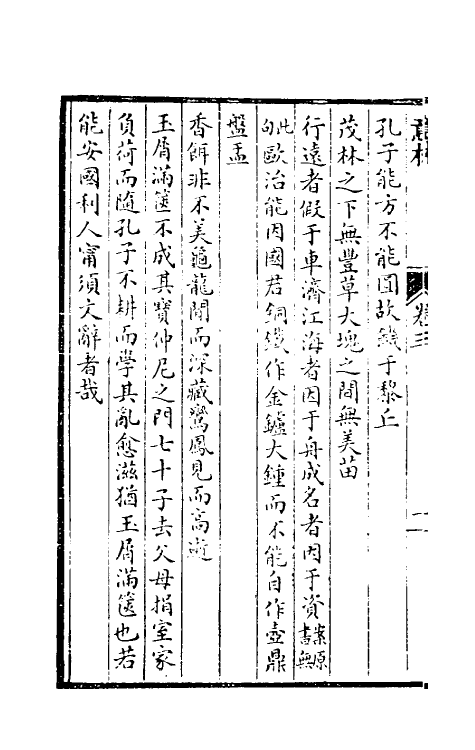 意林 卷三 二
孔子能方不能圓故饑于黎丘
茂林之下無豐草大塊之間無美苗
行遠者假于車濟江海者因于舟成名者因于資案原書無
此句歐冶能因國君銅鐵作金鑪大鍾而不能自作壺鼎
盤盂
香餌非不美龜龍聞而深藏鸞鳳見而高逝
玉屑滿篋不成其寶仲尼之門七十子去父母捐室家
負荷而隨孔子不耕而學其亂愈滋猶玉屑滿篋也若
能安國利人甯須文辭者哉